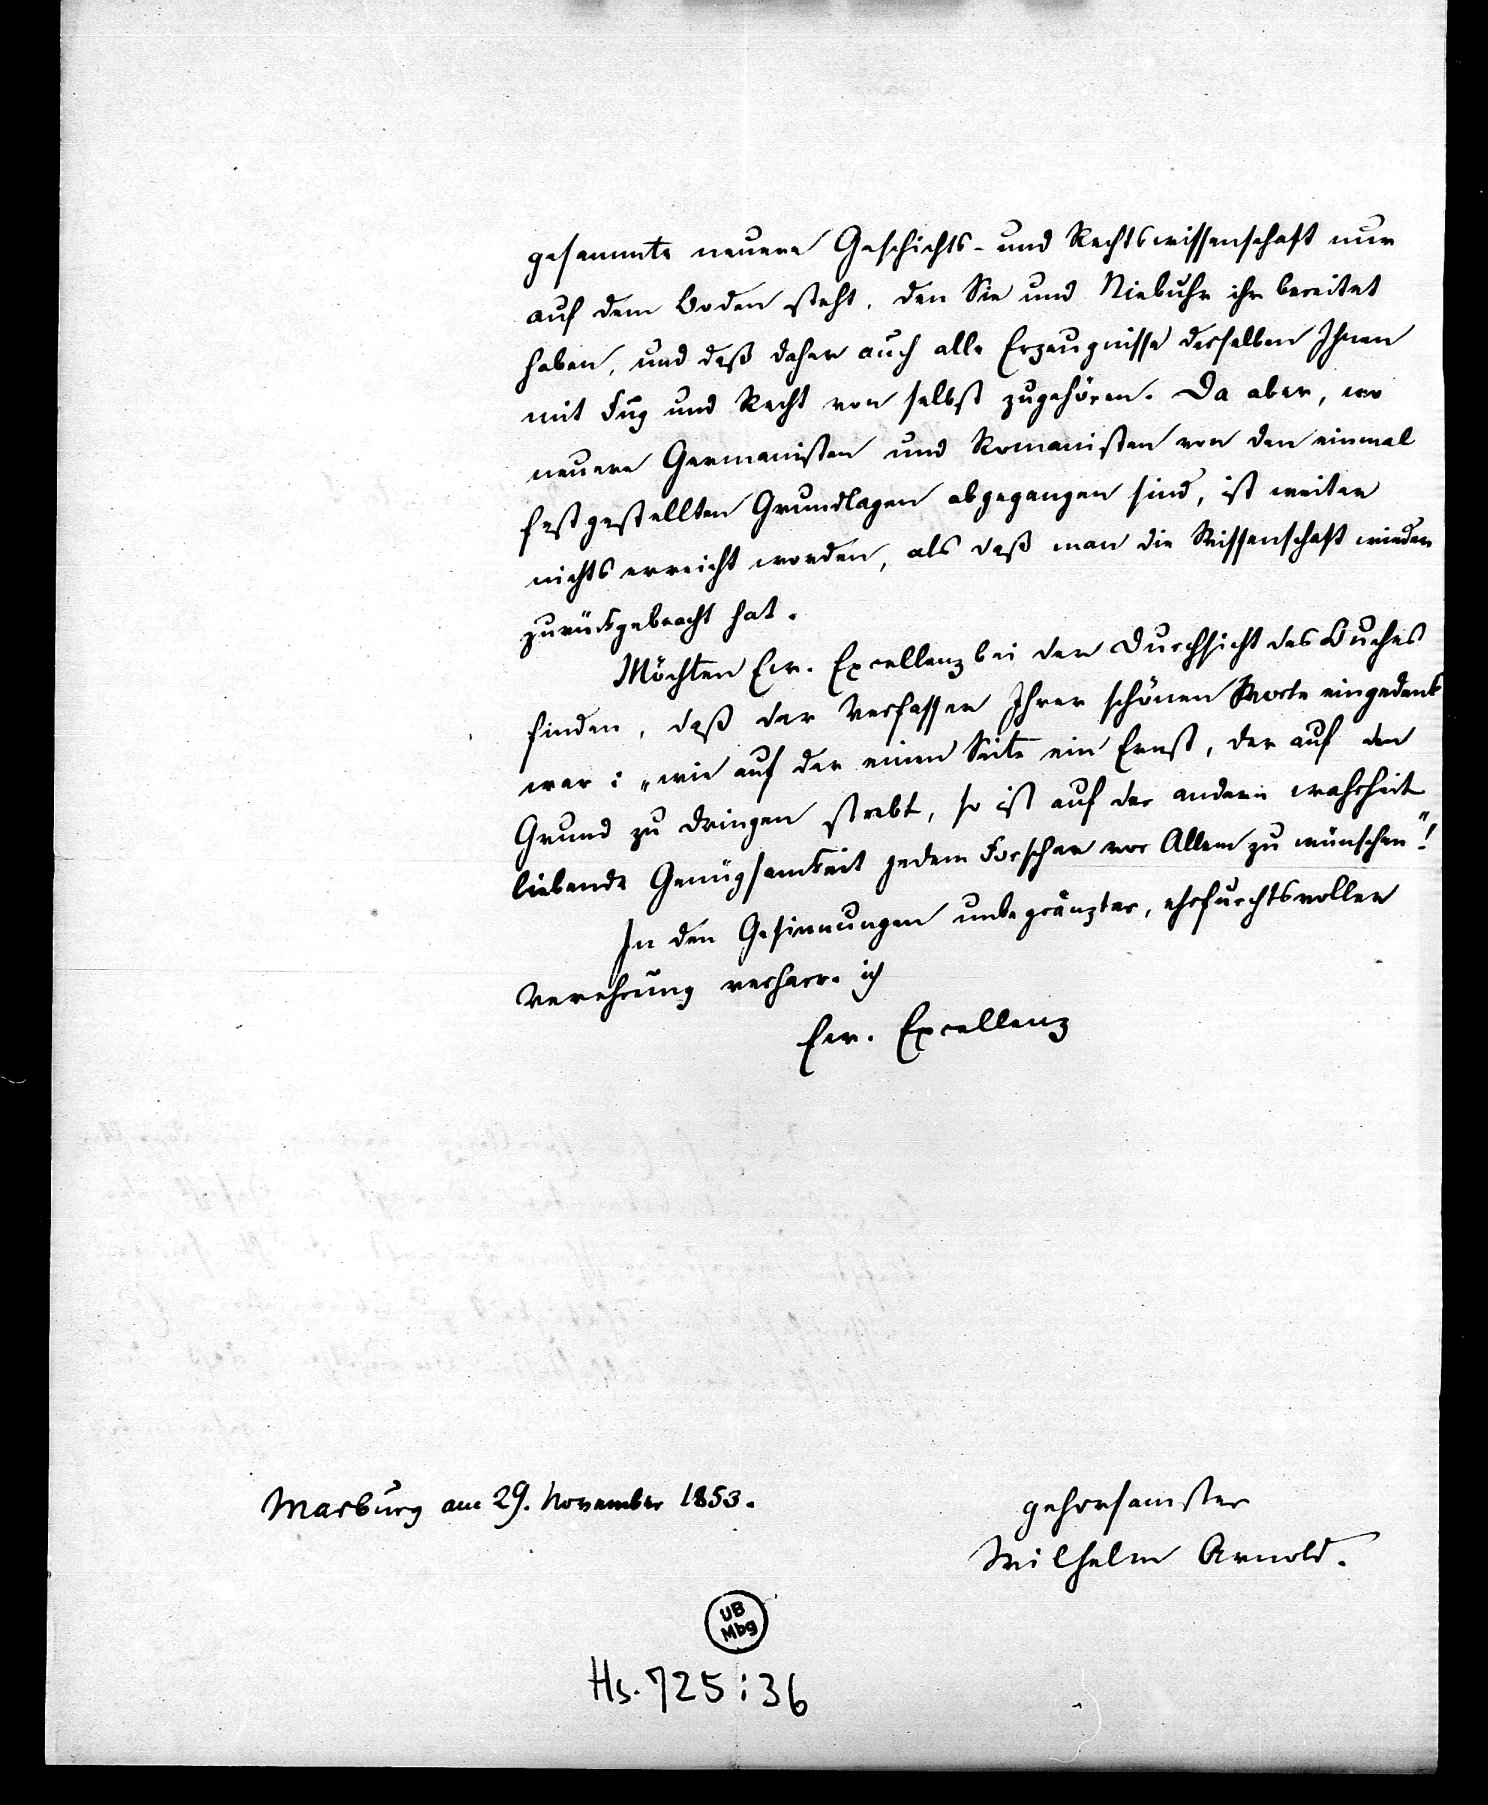 gesammte neuere Geschichts- und Rechtswissenschaft nur
auf dem Boden steht, den Sie und Niebuhr ihr bereitet
haben, und daß daher auch alle Erzeugnisse derselben Ihnen
mit Fug und Recht von selbst zugehören. Da aber, wo
neuere Germanisten und Romanisten von den einmal
festgestellten Grundlagen abgegangen sind, ist weiter
nichts erreicht worden, als daß man die Wissenschaft wieder
zurückgebracht hat.
Möchten Ew. Excellenz bei der Durchsicht des Buches
finden, daß der Verfasser Ihrer schönen Worte eingedenk
war: „wie auf der einen Seite ein Ernst, der auf den
Grund zu dringen strebt, so ist auf der andern wahrheit
liebende Genügsamkeit jedem Forscher vor Allem zu wünschen"!
In den Gesinnungen unbegränzter, ehrfurchtsvoller
Verehrung verharr. ich
Ew. Excellenz
Marburg am 29. November 1853.
gehorsamster
Wilhelm Arnold.
UB
Mbg
Hs. 725:36